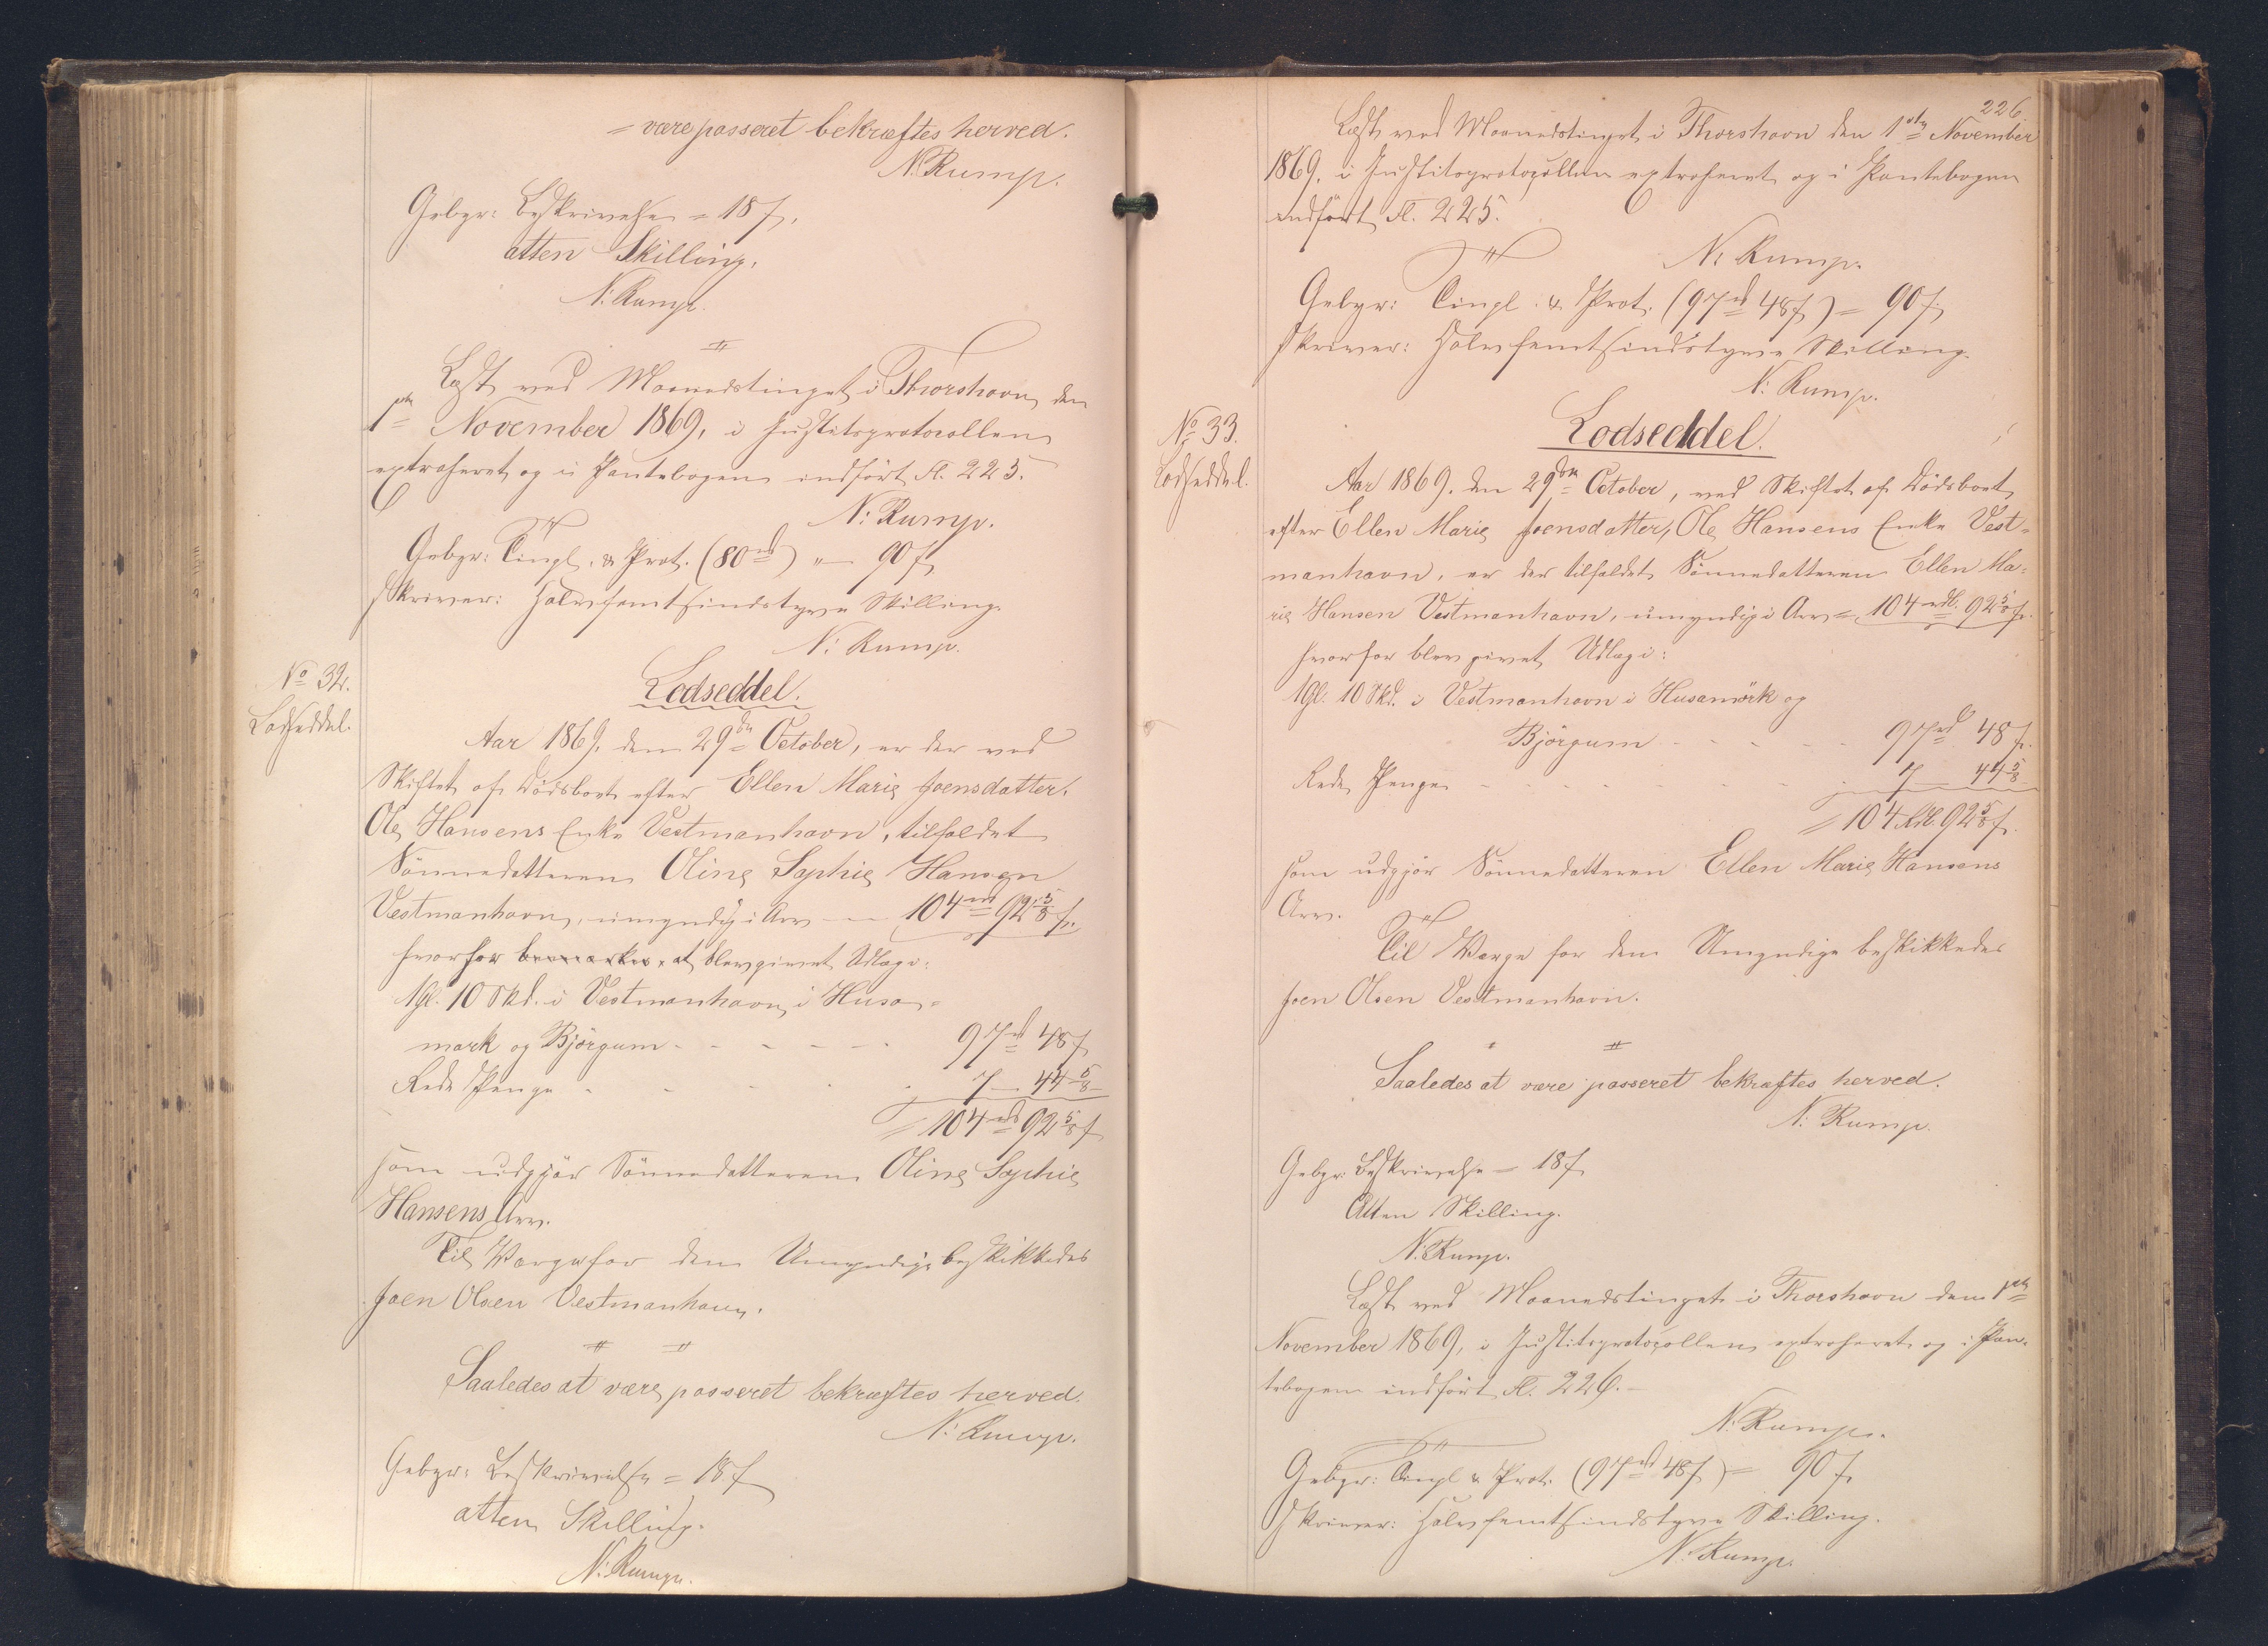 = være passeret bekræftes herved.
N. Rump.
Gebyr: Beskrivelse = 18 s,
atten Skilling.
N: Rump.
Læst ved Maanedstinget i Thorshavn den
1ste November 1869, i Justitsprotocollen
extraheret og i Pantebogen indført Fl. 225.
N: Rump.
Gebyr: Tingl. & Prot. (80 rd) = 90 s,
skriver: Halvfemtsindstyve Skilling.
N: Rump.
No 32.
Lodseddel.
Lodseddel.
Aar 1869, den 29de October, er der ved
Skiftet af Dødsboet efter Ellen Marie Joensdatter,
Ole Hansens Enke Vestmanhavn, tilfaldet
Sønnedatteren Oline Sophie Hansen
Vestmanhavn, umyndig i Arv = 104 rd 92 5/8 s.
hvorfor bemærkes, at blev givet Udlæg:
1 Gl. 10 Skd. i Vestmanhavn i Husa=
mørk og Björgum - - - - - 97 rd 48 s
Rede Penge - - - - 7 - 44 5/8
= 104 rd 92 5/8 s
som udgjør Sønnedatteren Oline Sophie
Hansens Arv.
Til Værge for den Umyndige beskikkedes
Joen Olsen Vestmanhavn.
Saaledes at være passeret bekræftes herved.
N: Rump.
Gebyr: Beskrivelse = 18 s
atten Skilling.
N: Rump.
226.
Læst ved Maanedstinget i Thorshavn den 1ste November
1869, i Justitsprotocollen extraheret og i Pantebogen
indført Fl. 225.
N: Rump.
Gebyr: Tingl. & Prot. (97 rd 48 s) = 90 s,
skriver: Halvfemtsindstyve Skilling.
N: Rump.
No 33.
Lodseddel.
Lodseddel.
Aar 1869, den 29de October, ved Skiftet af Dødsboet
efter Ellen Marie Joensdatter, Ole Hansens Enke Vest=
manhavn, er der tilfaldet Sønnedatteren Ellen Ma=
rie Hansen Vestmanhavn, umyndig i Arv = 104 rdl. 92 5/8 s.
hvorfor blev givet Udlæg i:
1 Gl. 10 Skd. i Vestmanhavn i Husamörk og
Björgum - - - - - 97 rd 48 s.
Rede Penge - - - - - - 7 - 44 5/8
= 104 Rdl. 92 5/8 s.
som udgjør Sønnedatteren Ellen Marie Hansens
Arv.
Til Værge for den Umyndige beskikkedes
Joen Olsen Vestmanhavn.
Saaledes at være passeret bekræftes herved.
N. Rump.
Gebyr: Beskrivelse = 18 s
Atten Skilling.
N. Rump.
Læst ved Maanedstinget i Thorshavn den 1ste
November 1869, i Justitsprotocollen extraheret og i Pan=
tebogen indført Fl. 226.
N. Rump.
Gebyr: Tingl & Prot. (97 rd 48 s) = 90 s.
skriver: Halvfemtsindstyve Skilling.
N. Rump.